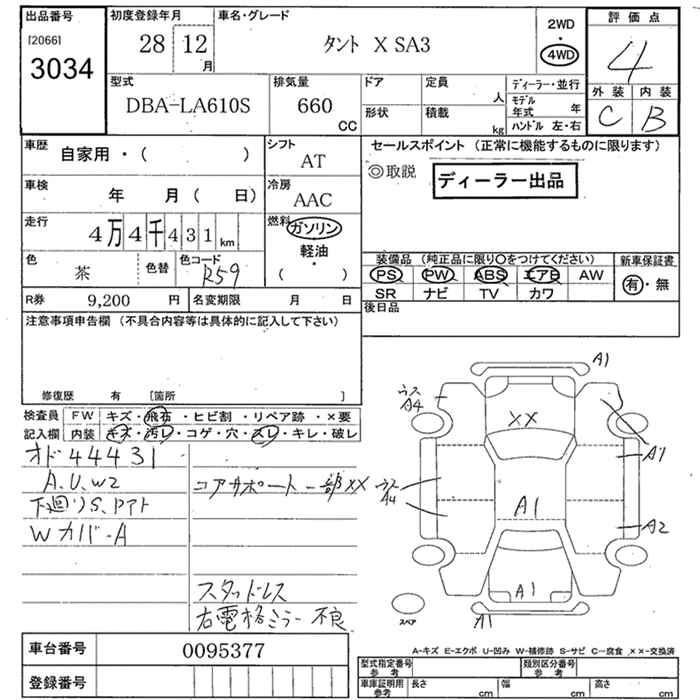 出品番号 初度登録年月 車名・グレード 2WD 評価点
[2066] 28 12 月 タント X SA3 4WD 4
3034
型式 排気量 ドア 定員 人 ディーラー・並行 外装 内装
DBA-LA610S 660 CC 形状 積載 kg モデル年式 年 C B
ハンドル 左・右
車歴 自家用・( ) シフト AT セールスポイント (正常に機能するものに限ります)
◎取説 ディーラー出品
車検 年 月 ( 日) 冷房 AAC
走行 4万4千431km 燃料 ガソリン
軽油
・
( )
色 茶 色替 色コード R59
装備品 (純正品に限り○をつけてください) 新車保証書
PS PW ABS エアB AW 有・無
SR ナビ TV カワ
R券 9,200 円 名変期限 月 日 後日品
注意事項申告欄 (不具合内容等は具体的に記入して下さい)
修復歴 有 [箇所 ]
検査員 FW キズ・飛石・ヒビ割・リペア跡・×要
記入欄 内装 キズ・汚レ・コゲ・穴・スレ・キレ・破レ
オド44431
A.U.W2 コアサポート一部XX
下廻りS.アアト
Wカバー A
スタッドレス
右電格ミラー不良
A1
ウス A4
XX
A1
ウス A4
A1
A2
A1
A1
スペア
A-キズ E-エクボ U-凹み W-補修跡 S-サビ C-腐食 ××-交換済
車台番号 0095377
型式指定番号 参考 類別区分番号 参考
登録番号
車庫証明用 参考 長さ cm 幅 cm 高さ cm